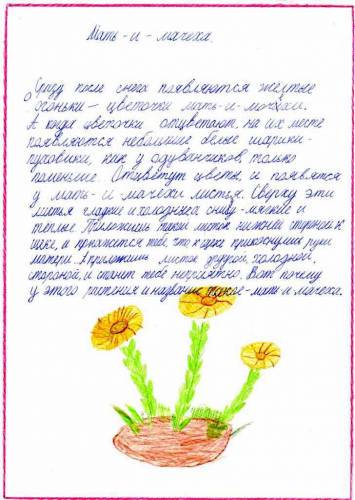 Мать-и-мачеха.
Сразу после снега появляются жёлтые
огоньки - цветочки мать-и-мачехи.
А когда цветочки отцветают, на их месте
появляются небольшие белые шарики-
пуховики, как у одуванчиков, только
поменьше. Отцветут цветы, и появятся
у мать-и-мачехи листья. Сверху эти
листья гладкие и холодные, снизу - мягкие и
теплые. Положишь такой листок нижней стороной к
щеке, и покажется тебе, что к щеке прикоснулись руки
матери. А приложишь листок другой, холодной,
стороной, и станет тебе неприятно. Вот почему
у этого растения и название такое - мать-и-мачеха.